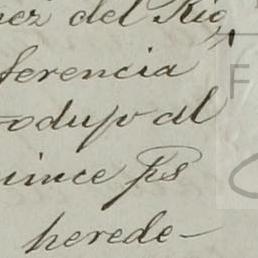 nez del Rio,
ferencia
odujo al
uince ps
herede-